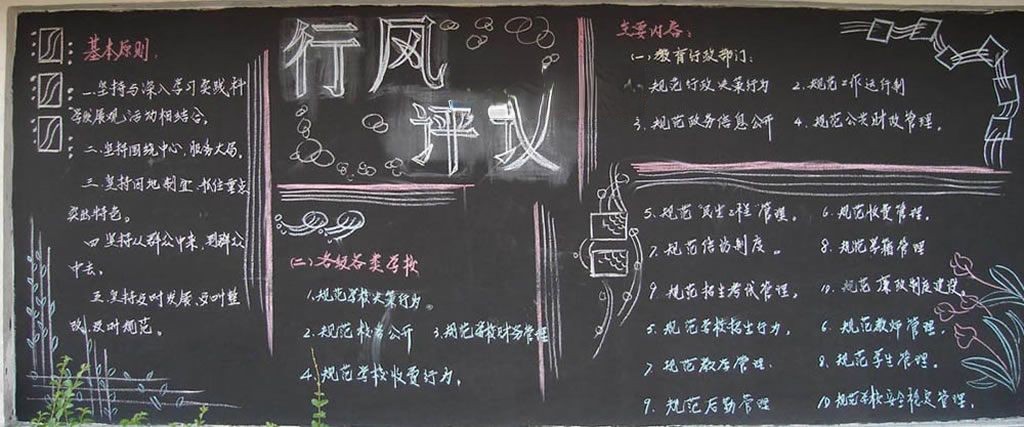 行风
评议
基本原则:
一.坚持与深入学习实践科
学发展观活动相结合。
二.坚持围绕中心,服务大局。
三.坚持因地制宜 抓住重点
突出特色。
四 坚持从群众中来,到群众
中去。
五.坚持及时发展,及时整
改,及时规范。
(二)各级各类学校
1.规范学校决策行为。
2.规范校务公开 3.规范学校财务管理
4.规范学校收费行为。
主要内容:
(一)教育行政部门:
1.规范行政决策行为 2.规范工作运行制
3.规范政务信息公开 4.规范公共财政管理。
5.规范民生工程管理。 6.规范收费管理。
7.规范信访制度。 8.规范学籍管理
9.规范招生考试管理。 10.规范廉政制度建设
5.规范学校招生行为。 6.规范教师管理。
7.规范教学管理. 8.规范学生管理.
9.规范后勤管理 10.规范学校安全稳定管理.